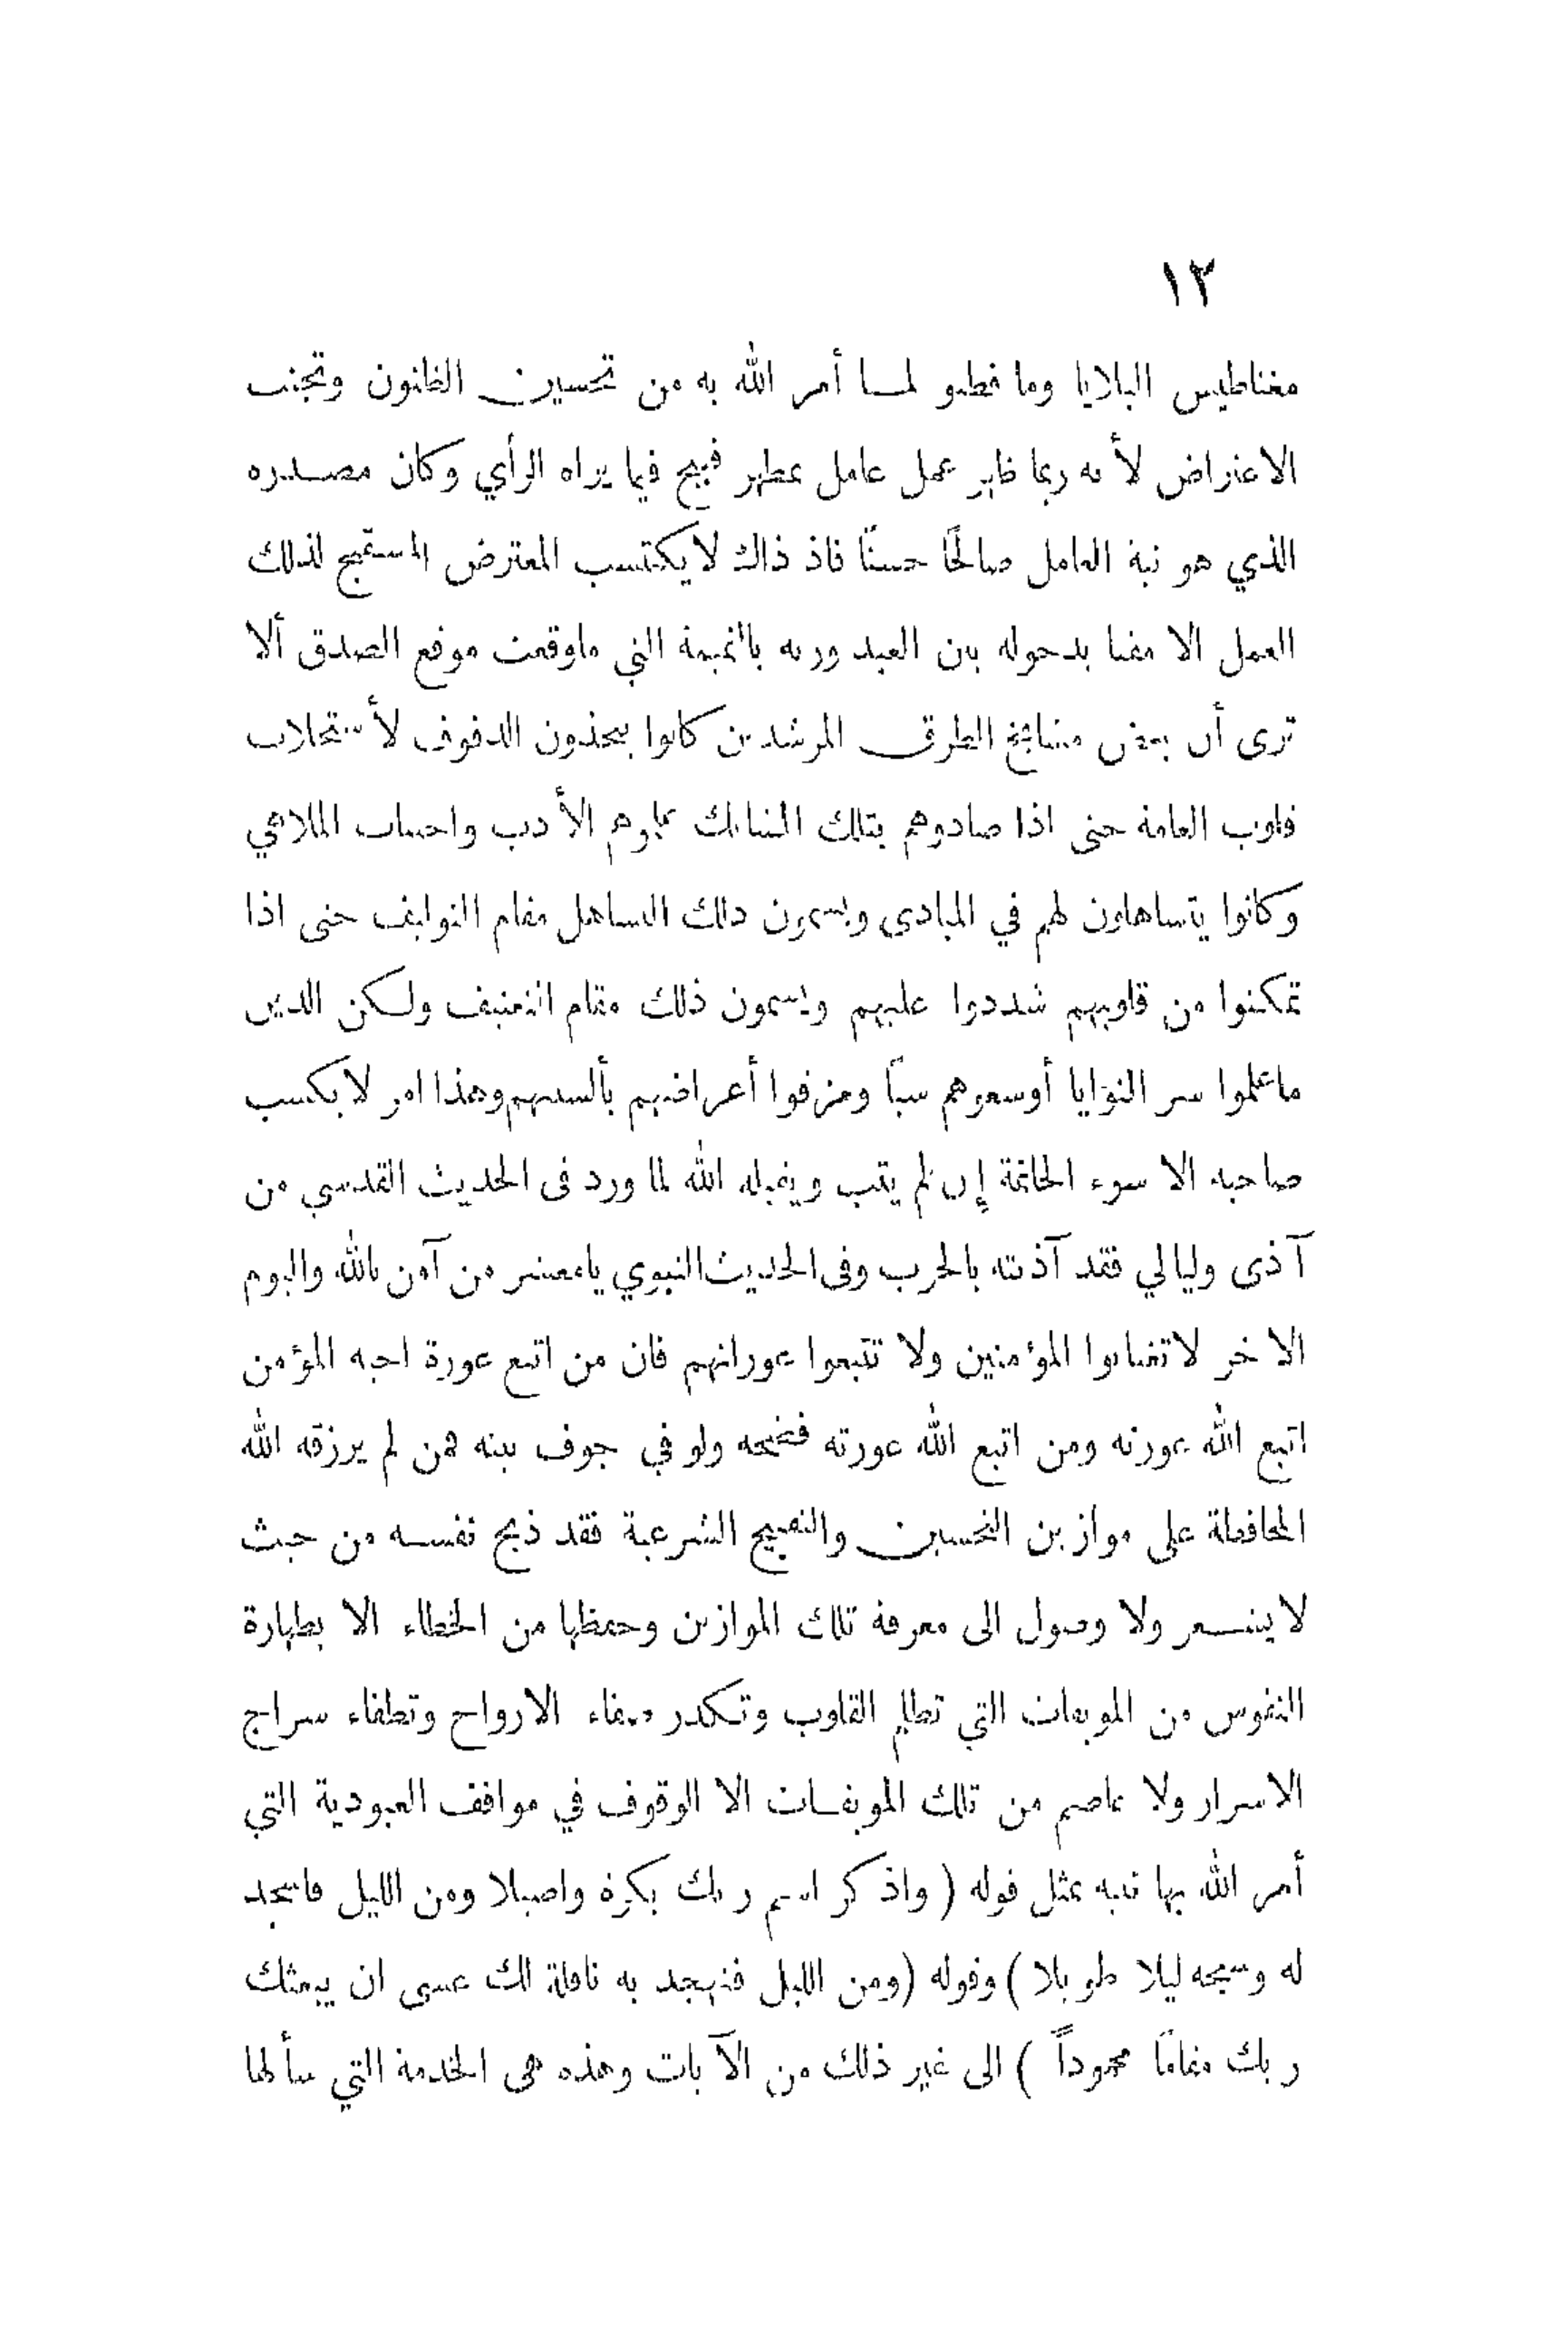 ١٢
مغناطيس البلايا وما فطنو لمــا أمر الله به من تحسين الظنون وتجنب
الاعتراض لأنه ربما ظهر عمل عامل بمظهر قبيح فيما يراه الرأي وكان مصــدره
الذي هو نية العامل صالحًا حسنًا فاذ ذاك لا يكتسب المعترض المستقبح لذلك
العمل الا مقتا بدخوله بين العبد وربه بالنميمة التي ماوقعت موقع الصدق ألا
ترى أن بعض مشايخ الطرق المرشدين كانوا يتخذون الدفوف لأستجلاب
قلوب العامة حتى اذا صادوهم بتلك الشبابك علموهم الأدب واجتناب الملاهي
وكانوا يتساهلون لهم في المبادى ويسمون ذلك التساهل مقام التواليف حتى اذا
تمكنوا من قلوبهم شددوا عليهم ويسمون ذلك مقام التعنيف ولــكن الذين
ماعلموا سر النوايا أوسعوهم سبًا ومزقوا أعراضهم بألسنتهم وهذا امر لا يكسب
صاحبه الا سوء الخاتمة إن لم يتب ويقبله الله لما ورد فى الحديث القدسي من
آذى وليا لي فقد آذنته بالحرب وفى الحديث النبوي يامعشر من آمن بالله واليوم
الاخر لاتغتابوا المؤمنين ولا تتبعوا عوراتهم فان من اتبع عورة اخيه المؤمن
اتبع الله عورته ومن اتبع الله عورته فضحه ولو في جوف بيته فمن لم يرزقه الله
المحافظة على موازين التحسين والتقبيح الشرعية فقد ذبح نفسه من حيث
لايشــعر ولا وصول الى معرفة تلك الموازين وحفظها من الخطاء الا بطهارة
النفوس من الموبقات التي تظلم القلوب وتــكدر صفاء الارواح وتطفاء سراج
الاسرار ولا عاصم من تلك الموبقــات الا الوقوف في مواقف العبودية التي
أمر الله بها نبيه بمثل قوله ( واذكر اسم ربك بكرة واصيلا ومن الليل فاسجد
له وسبحه ليلا طويلا ) وقوله (ومن الليل فتهجد به نافلة لك عسى ان يبعثك
ربك مقامًا محموداً ) الى غير ذلك من الآيات وهذه هى الخدمة التي سألها